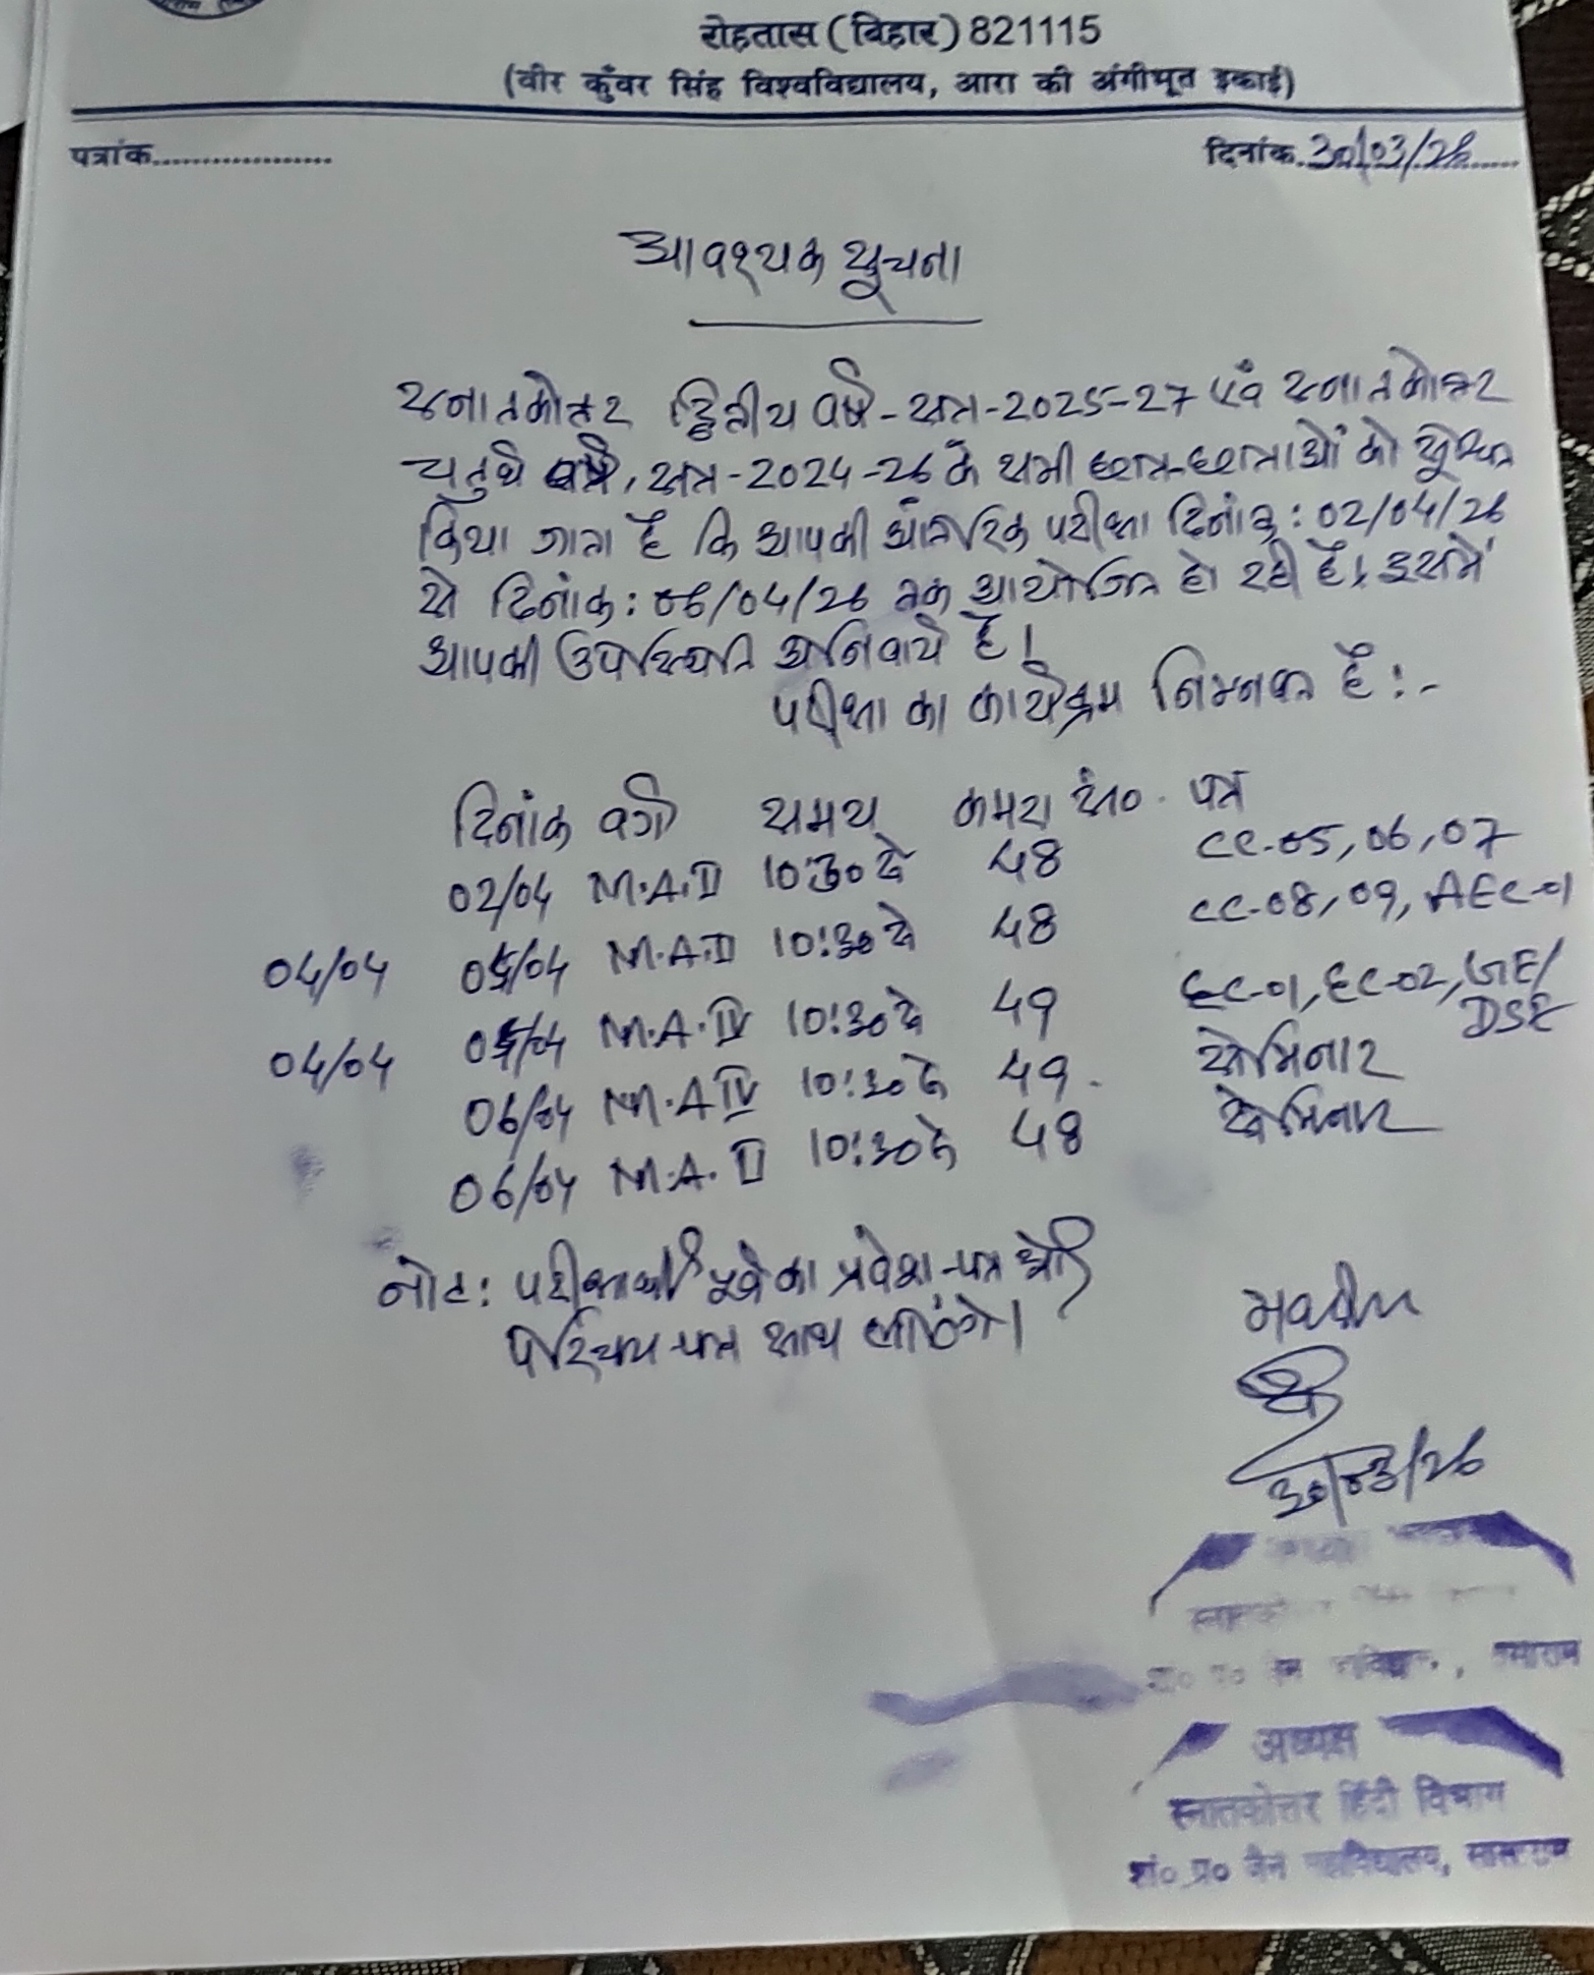 रोहतास (बिहार) 821115
(वीर कुँवर सिंह विश्वविद्यालय, आरा की अंगीभूत इकाई)
पत्रांक.................. दिनांक. 30/03/26......
आवश्यक सूचना
स्नातकोत्तर द्वितीय वर्ष - सत्र - 2025-27 एवं स्नातकोत्तर
चतुर्थ वर्ष, सत्र - 2024-26 के सभी छात्र-छात्राओं को सूचित
किया जाता है कि आपकी आंतरिक परीक्षा दिनांक: 02/04/26
से दिनांक: 06/04/26 तक आयोजित हो रही है। इसमें
आपकी उपस्थिति अनिवार्य है।
परीक्षा का कार्यक्रम निम्नवत है:-
दिनांक वर्ग समय कमरा सं० पत्र
02/04 M.A.II 10:30 से 48 CC-05, 06, 07
04/04 05/04 M.A.II 10:30 से 48 CC-08, 09, AEC-01
04/04 05/04 M.A.IV 10:30 से 49 EC-01, EC-02, GE/
DSE
06/04 M.A IV 10:30 से 49. सेमिनार
06/04 M.A. II 10:30 से 48 सेमिनार
नोट: परीक्षार्थी पूर्व का प्रवेश-पत्र और
परिचय-पत्र साथ लाएंगे।
30/03/26
स्नातकोत्तर
अध्यक्ष
स्नातकोत्तर हिंदी विभाग
शं० प्र० जैन महाविद्यालय, सासाराम